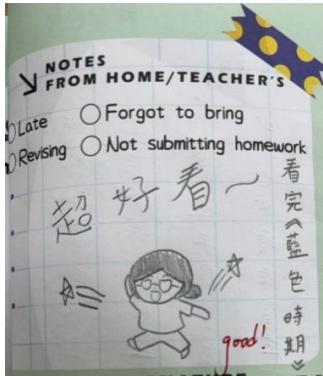 NOTES
FROM HOME/TEACHER'S
Late
Forgot to bring
Revising
Not submitting homework
超好看～
看完《藍色時期》
good!